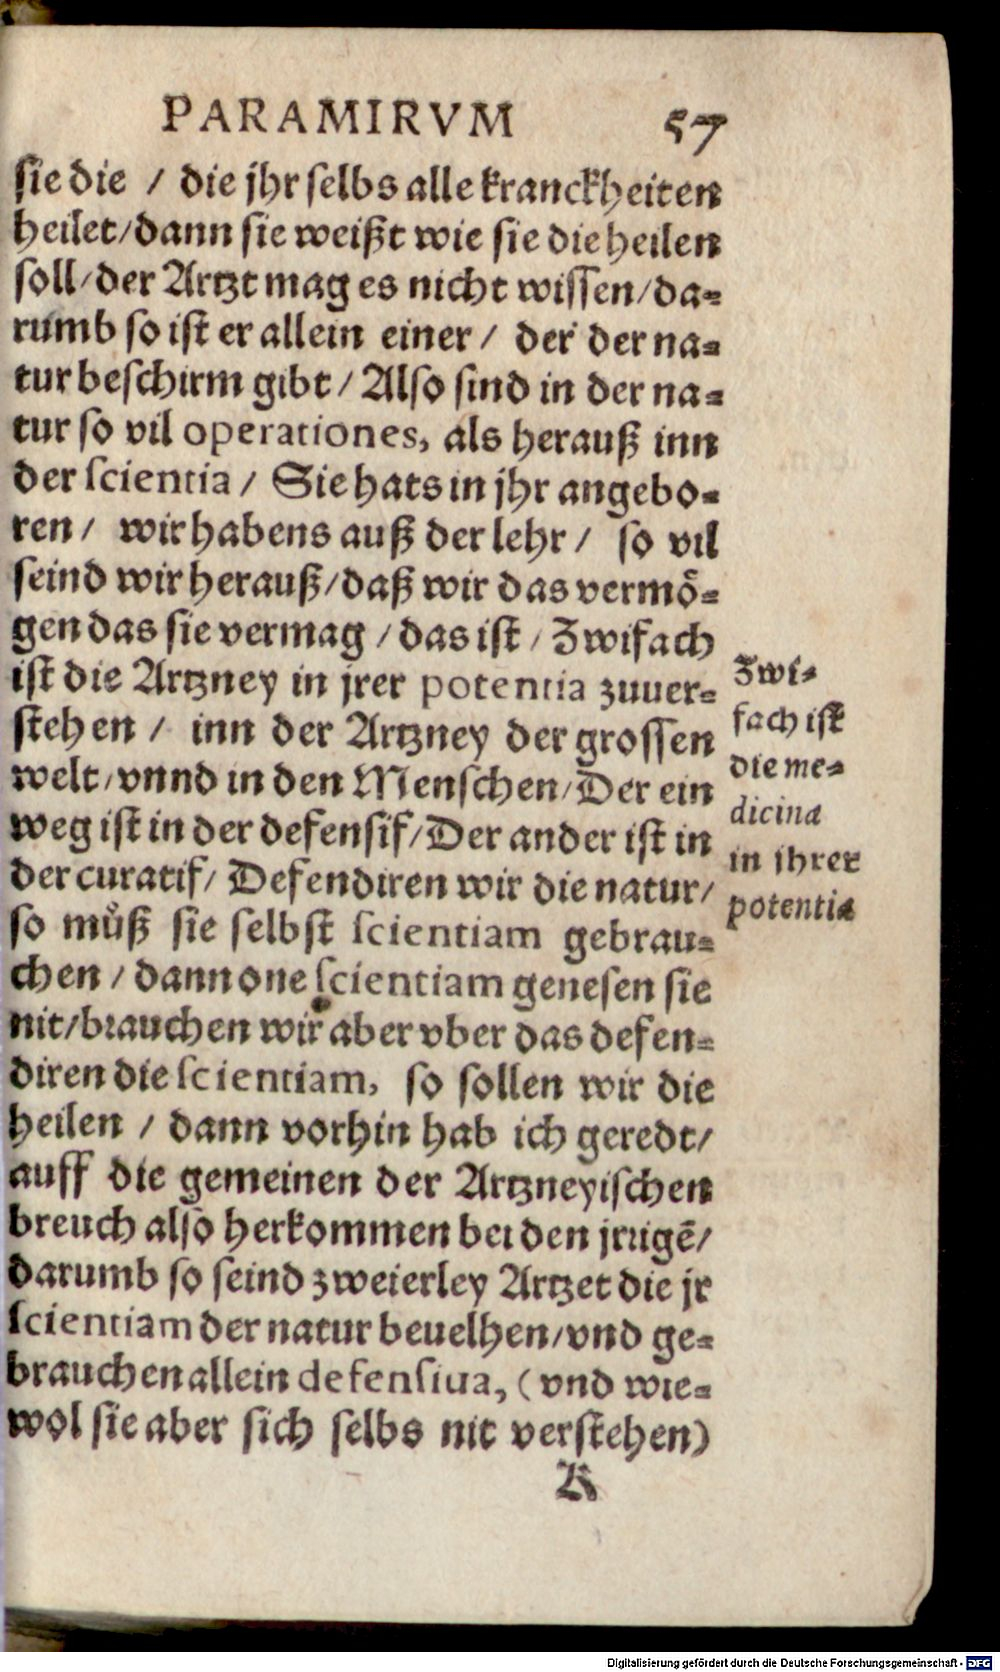 PARAMIRVM 57
sie die / die jhr selbs alle kranckheiten
heilet/dann sie weißt wie sie die heilen
soll/der Artzt mag es nicht wissen/da-
rumb so ist er allein einer / der der na-
tur beschirm gibt / Also sind in der na-
tur so vil operationes, als herauß inn
der scientia / Sie hats in jhr angebo-
ren / wir habens auß der lehr / so vil
seind wir herauß/daß wir das vermö-
gen das sie vermag / das ist / Zwifach
ist die Artzney in jrer potentia zuuer-
stehen / inn der Artzney der grossen
welt/vnnd in den Menschen/Der ein
weg ist in der defensif/Der ander ist in
der curatif/ Defendiren wir die natur/
so můß sie selbst scientiam gebrau-
chen / dann one scientiam genesen sie
nit/brauchen wir aber vber das defen-
diren die scientiam, so sollen wir die
heilen / dann vorhin hab ich geredt/
auff die gemeinen der Artzneyischen
breuch also herkommen bei den jrrigē/
darumb so seind zweierley Artzet die jr
scientiam der natur beuelhen/vnd ge-
brauchen allein defensiua, (vnd wie-
wol sie aber sich selbs nit verstehen)
K
Zwi-
fach ist
die me-
dicina
in jhrer
potentia
Digitalisierung gefördert durch die Deutsche Forschungsgemeinschaft - DFG